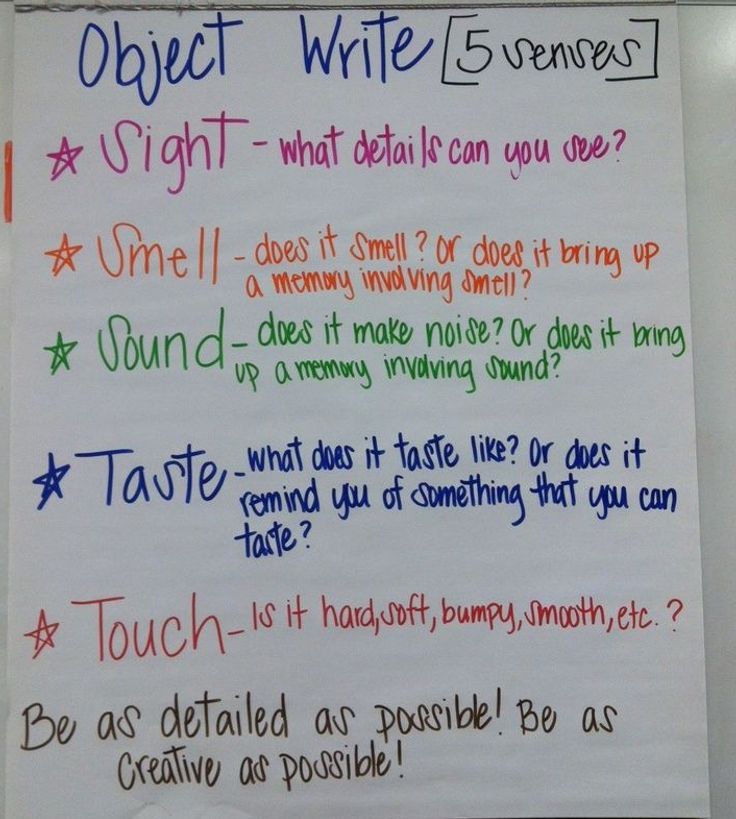 Object Write [5 senses]
☆ Sight - what details can you see?
☆ Smell - does it smell? Or does it bring up
a memory involving smell?
☆ Sound - does it make noise? Or does it bring
up a memory involving sound?
☆ Taste - What does it taste like? Or does it
remind you of something that you can
taste?
☆ Touch - Is it hard, soft, bumpy, smooth, etc.?
Be as detailed as possible! Be as
creative as possible!